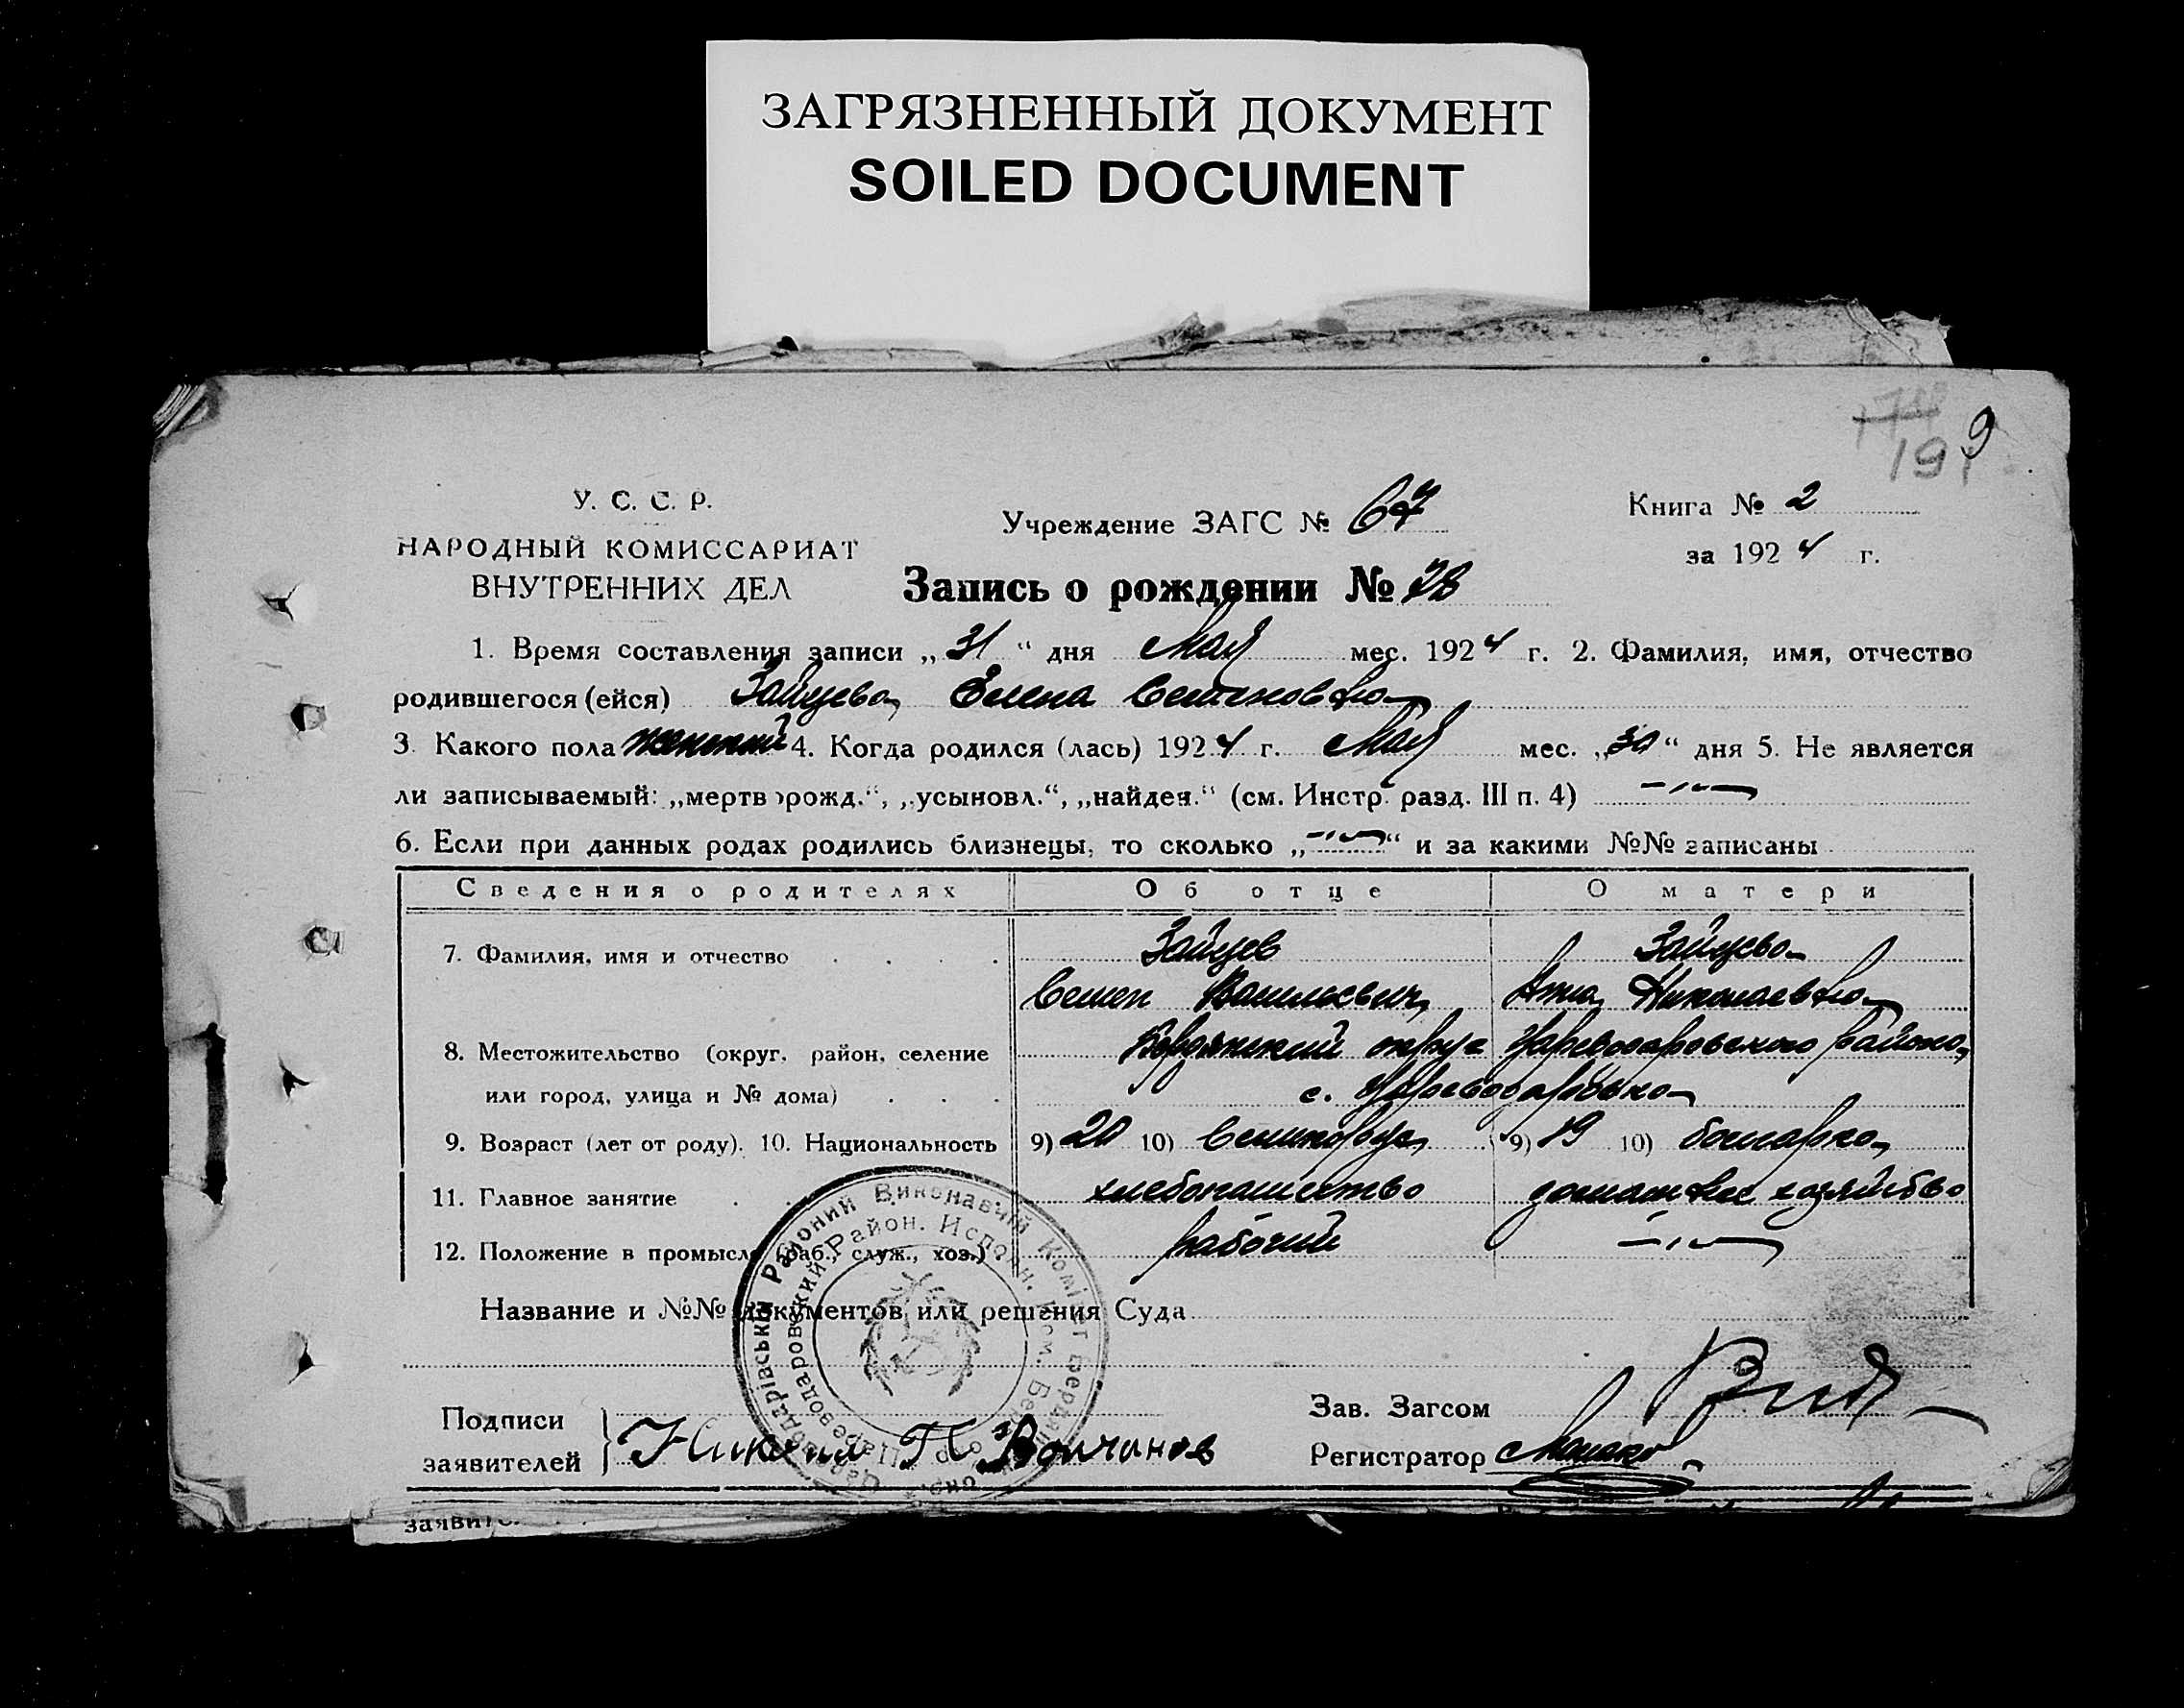 ЗАГРЯЗНЕННЫЙ ДОКУМЕНТ
SOILED DOCUMENT
191 9
У. С. С. Р.
НАРОДНЫЙ КОМИССАРИАТ
ВНУТРЕННИХ ДЕЛ
Учреждение ЗАГС № 67
Книга № 2
за 1924 г.
Запись о рождении № 78
1. Время составления записи „31“ дня Мая мес. 1924 г. 2. Фамилия, имя, отчество
родившегося (ейся) Зайцева Елена Семеновна
3. Какого пола женский 4. Когда родился (лась) 1924 г. Мая мес. „30“ дня 5. Не является
ли записываемый: „мертворожд.“, „усыновл.“, „найден.“ (см. Инстр. разд. III п. 4)
6. Если при данных родах родились близнецы, то сколько „ “ и за какими №№ записаны
Сведения о родителях Об отце О матери
7. Фамилия, имя и отчество . . . . Зайцев Зайцева
Семен Васильевич Анна Николаевна
8. Местожительство (округ, район, селение Бердянский округ Цареводаровского района,
или город, улица и № дома) . . . с. Цареводаровка
9. Возраст (лет от роду). 10. Национальность 9) 20 10) Великорус 9) 19 10) болгарка
11. Главное занятие . . хлебопашество домашнее хозяйство
12. Положение в промысле (раб., служ., хоз.) рабочий
Название и №№ документов или решения Суда
Районий Виконавчий Комітет
Цареводаровский Район. Исполн. Ком.
Подписи
заявителей Николай П Волчанов
Зав. Загсом
Регистратор